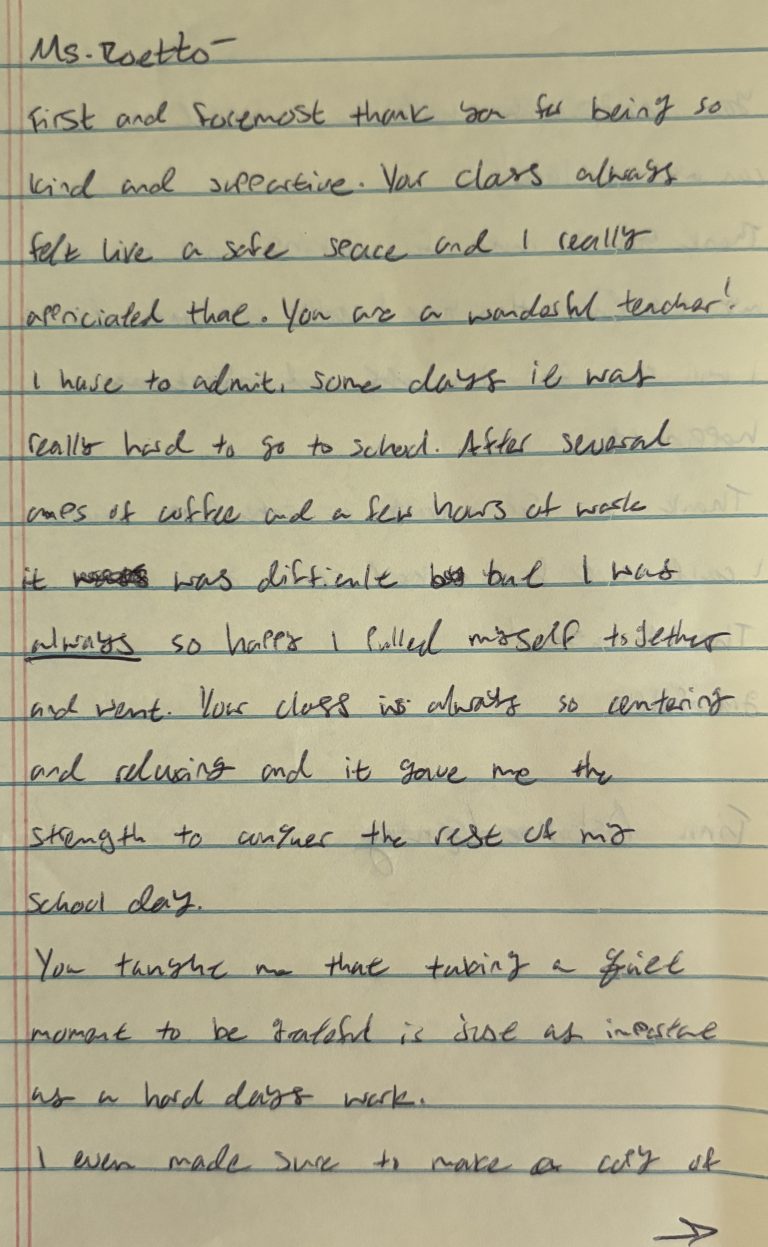 Ms. Roetto-
First and foremost thank you for being so
kind and supportive. Your class always
felt like a safe space and I really
appriciated that. You are a wonderful teacher!
I have to admit, some days it was
really hard to go to school. After several
cups of coffee and a few hours at work
it was difficult but I was
always so happy I pulled myself together
and went. Your class is always so centering
and relaxing and it gave me the
strength to conquer the rest of my
school day.
You taught me that taking a quiet
moment to be grateful is just as important
as a hard days work.
I even made sure to make a copy of
→